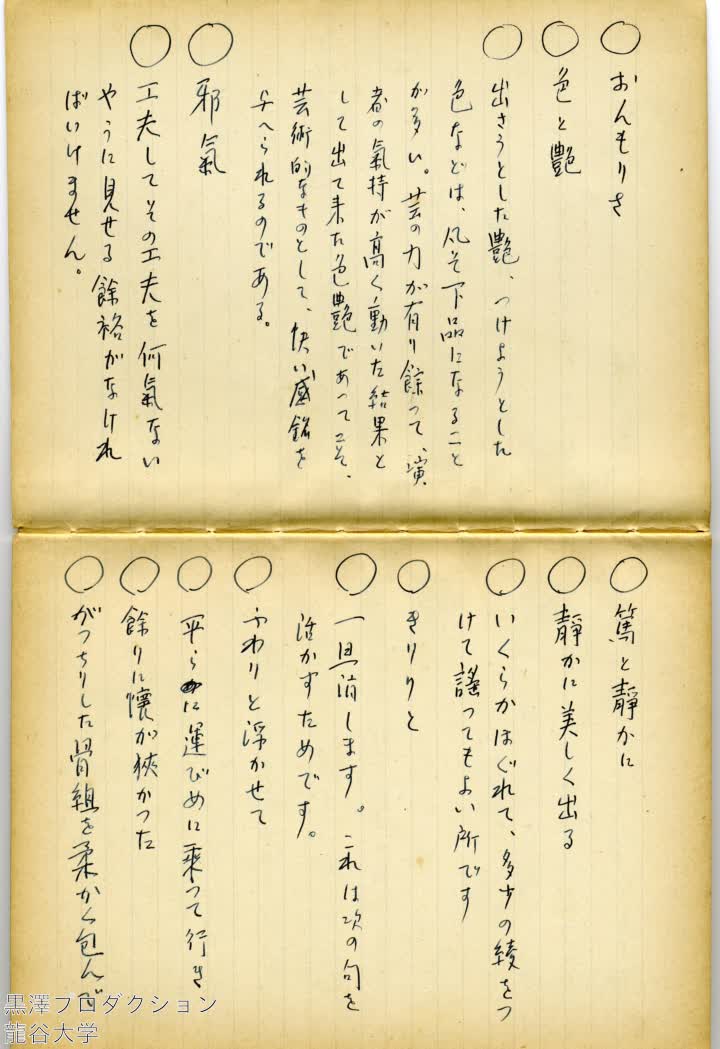 ○ おんもりさ
○ 色と艶
○ 出さうとした艶、つけようとした
色などは、凡そ下品になること
が多い。芸の力が有り餘つて、演
者の氣持が高く動いた結果と
して出て来た色艶であつてこそ、
芸術的なものとして、快い感銘を
与へられるのである。
○ 邪氣
○ 工夫してその工夫を何氣ない
やうに見せる餘裕がなけれ
ばいけません。
○ 篤と靜かに
○ 靜かに美しく出る
○ いくらかほぐれて、多少の綾をつ
けて謡つてもよい所です
○ きりりと
○ 一旦消します。これは次の句を
活かすためです。
○ ふわりと浮かせて
○ 平らに運びめに乗つて行き
○ 餘りに懐が狹かつた
○ がつちりした骨組を柔かく包んで
黒澤プロダクション
龍谷大学